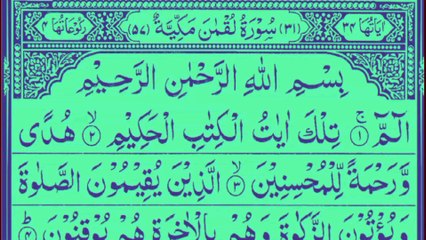 اٰيَاتُهَا ٣٤ (٣١) سُوْرَةُ لُقْمٰنَ مَكِّيَّةٌ (٥٧) رُكُوْعَاتُهَا ٤
بِسْمِ اللّٰهِ الرَّحْمٰنِ الرَّحِيْمِ
الٓمّٓ ۚ ﴿١﴾ تِلْكَ اٰيٰتُ الْكِتٰبِ الْحَكِيْمِ ۙ ﴿٢﴾ هُدًى
وَّرَحْمَةً لِّلْمُحْسِنِيْنَ ۙ ﴿٣﴾ الَّذِيْنَ يُقِيْمُوْنَ الصَّلٰوةَ
وَيُؤْتُوْنَ الزَّكٰوةَ وَهُمْ بِالْاٰخِرَةِ هُمْ يُوْقِنُوْنَ ؕ ﴿٤﴾